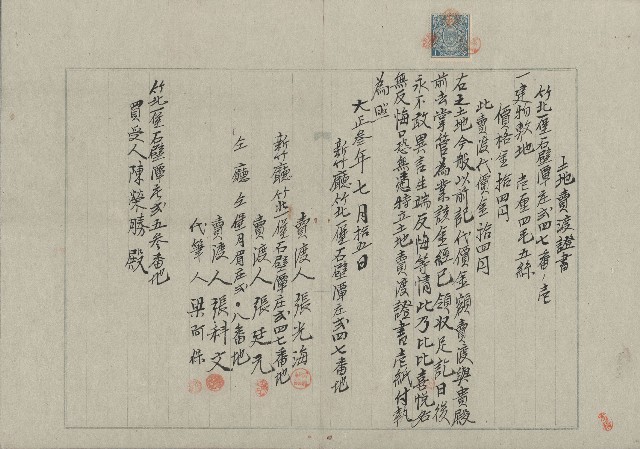 土地賣渡證書
竹北一堡石壁潭庄貳四七番ノ壱
一建物敷地 壱厘四毛五絲
價格金拾四円
此賣渡代價金拾四円
右之土地今般以前記代價金額賣渡與貴殿
前去掌管為業該金經已領收足訖日後
永不敢異言生端反悔等情此乃比比喜悅各
無反悔口恐無憑特立土地賣渡證書壱紙付執
為照
大正叁年七月拾五日
新竹廳竹北一堡石壁潭庄貳四七番地
賣渡人 張光海
新竹廳竹北一堡石壁潭庄貳四七番地
賣渡人 張廷元
仝廳仝堡月眉庄貳〇八番地
賣渡人 張科文
代筆人 梁阿保
竹北一堡石壁潭庄貳五参番地
買受人 陳榮勝 殿